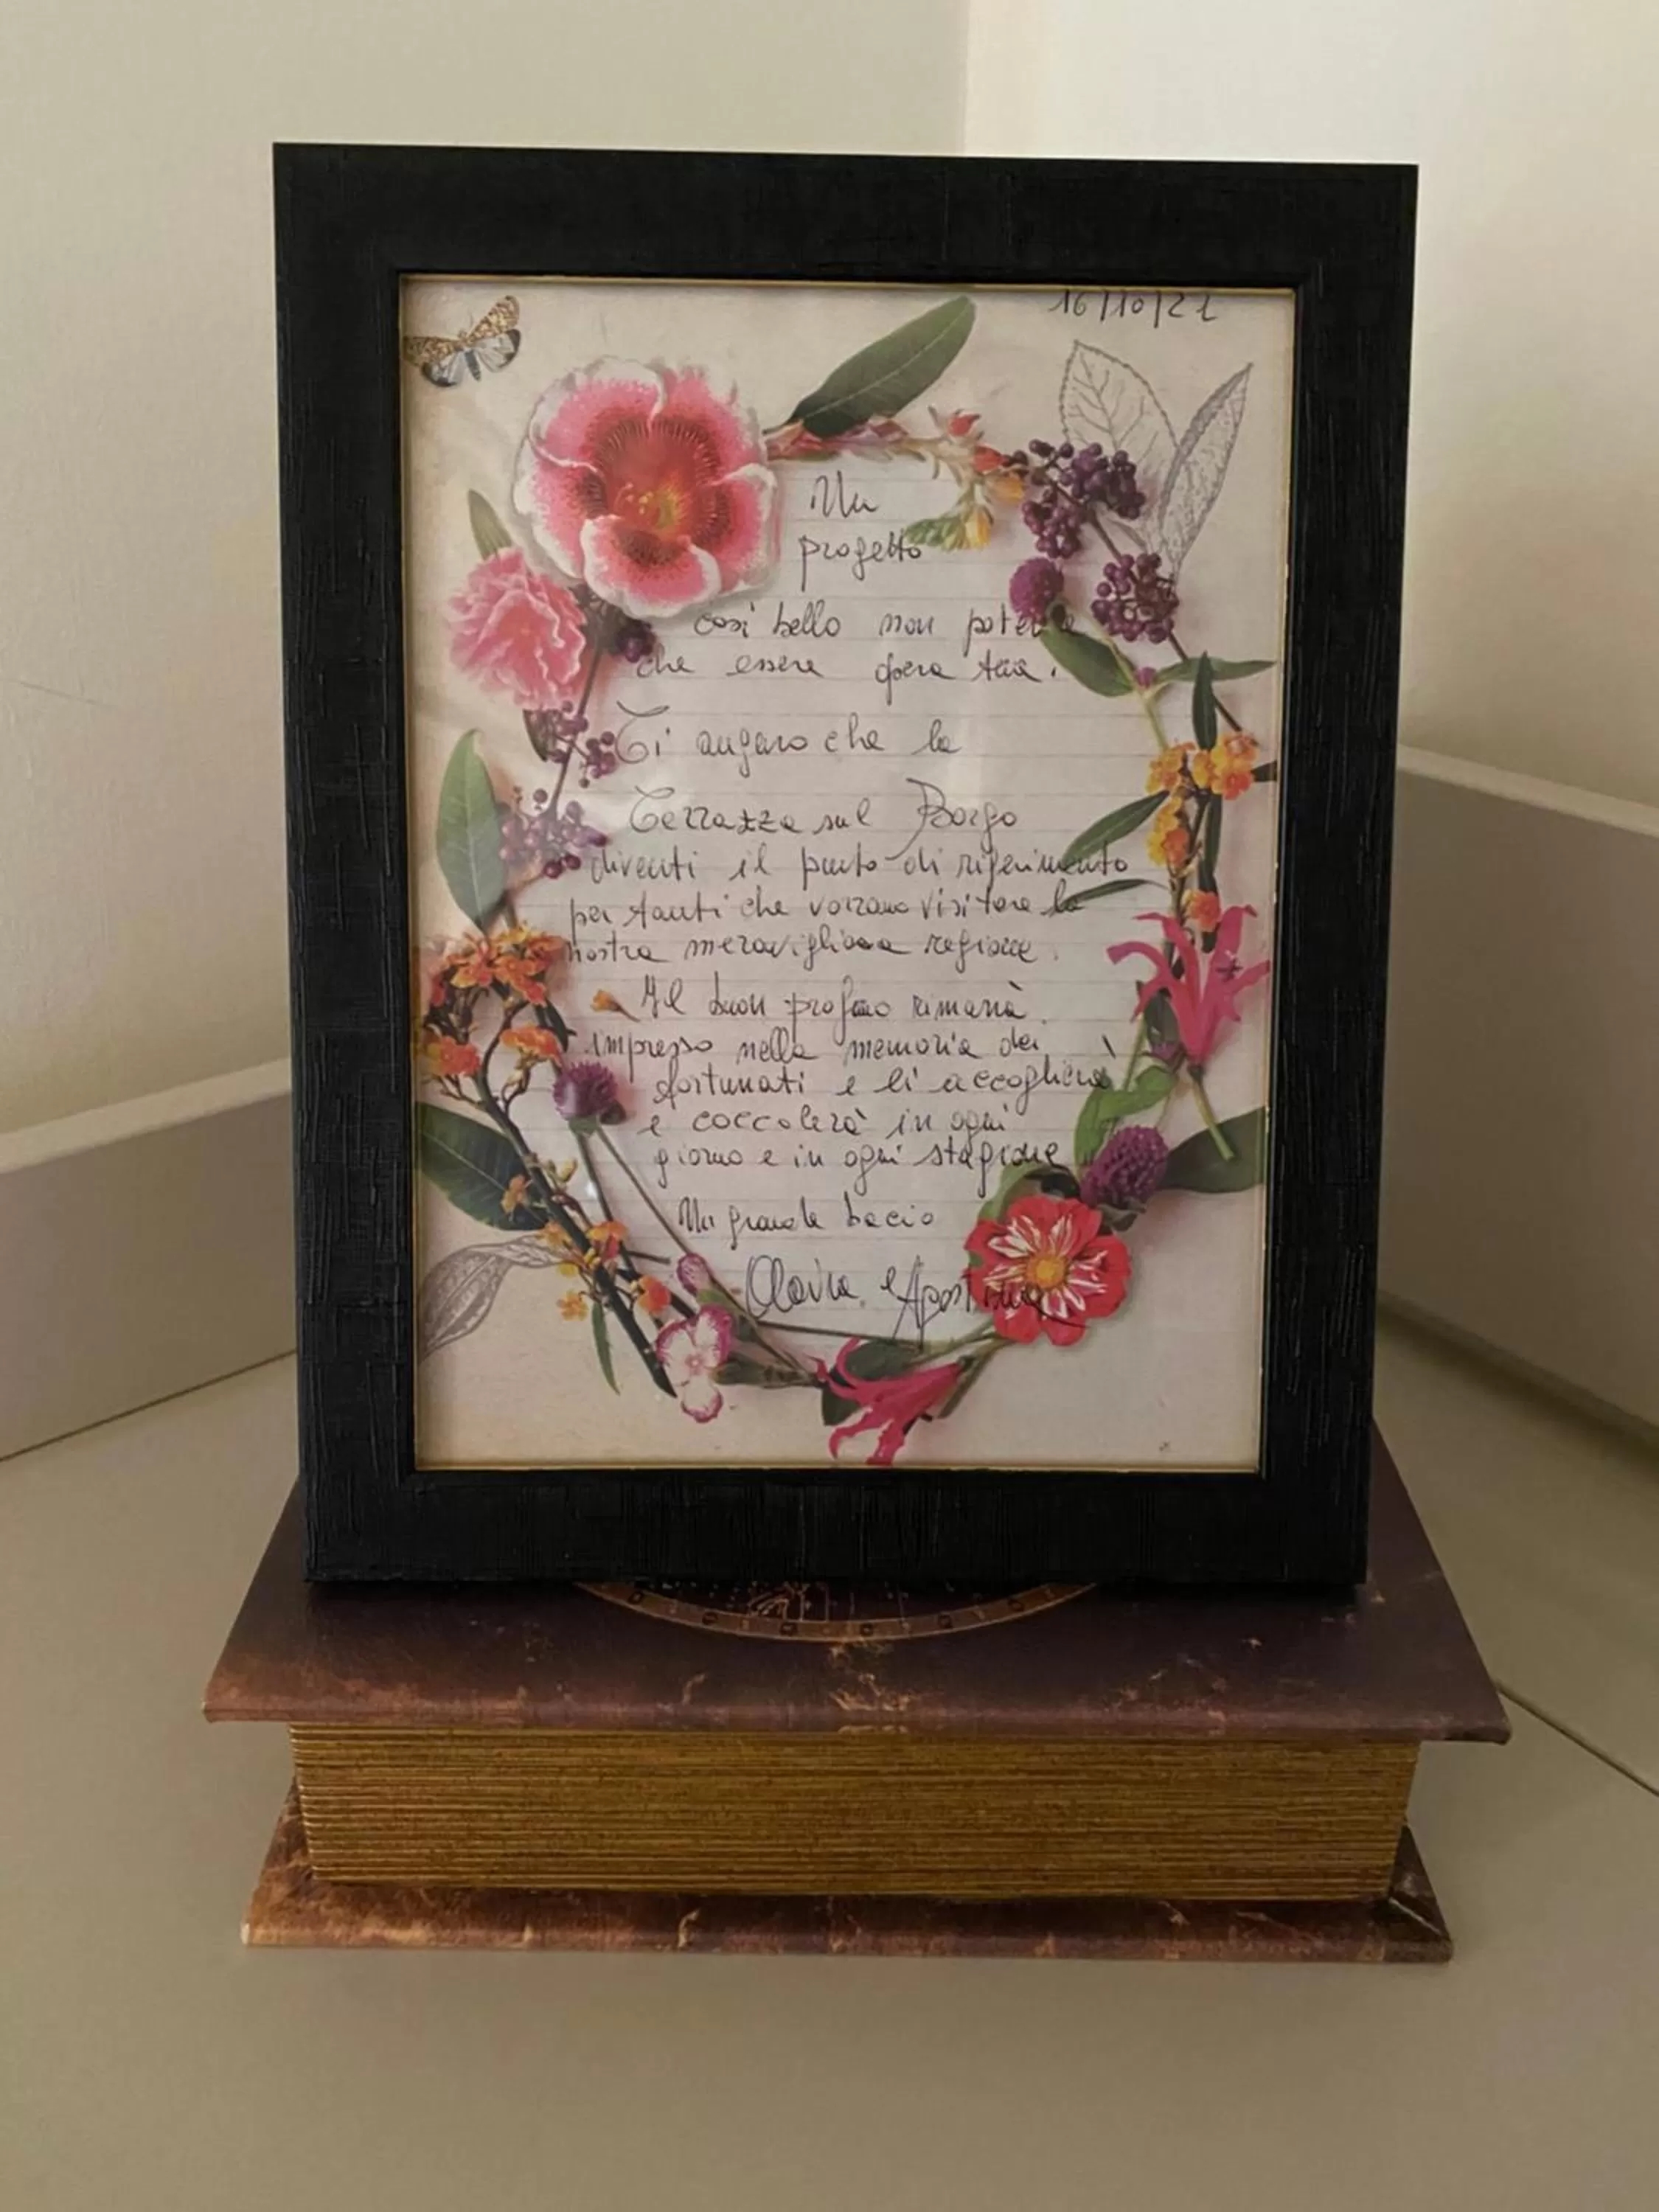 16/10/21
Un
progetto
così bello non poteva
che essere opera tua.
Ti auguro che la
Terrazza sul Borgo
diventi il punto di riferimento
per tanti che vorranno visitare la
nostra meravigliosa regione.
Il buon profumo rimarrà
impresso nella memoria dei
fortunati e li accoglierà
e coccolerà in ogni
giorno e in ogni stagione
Un grande bacio
e Agostina